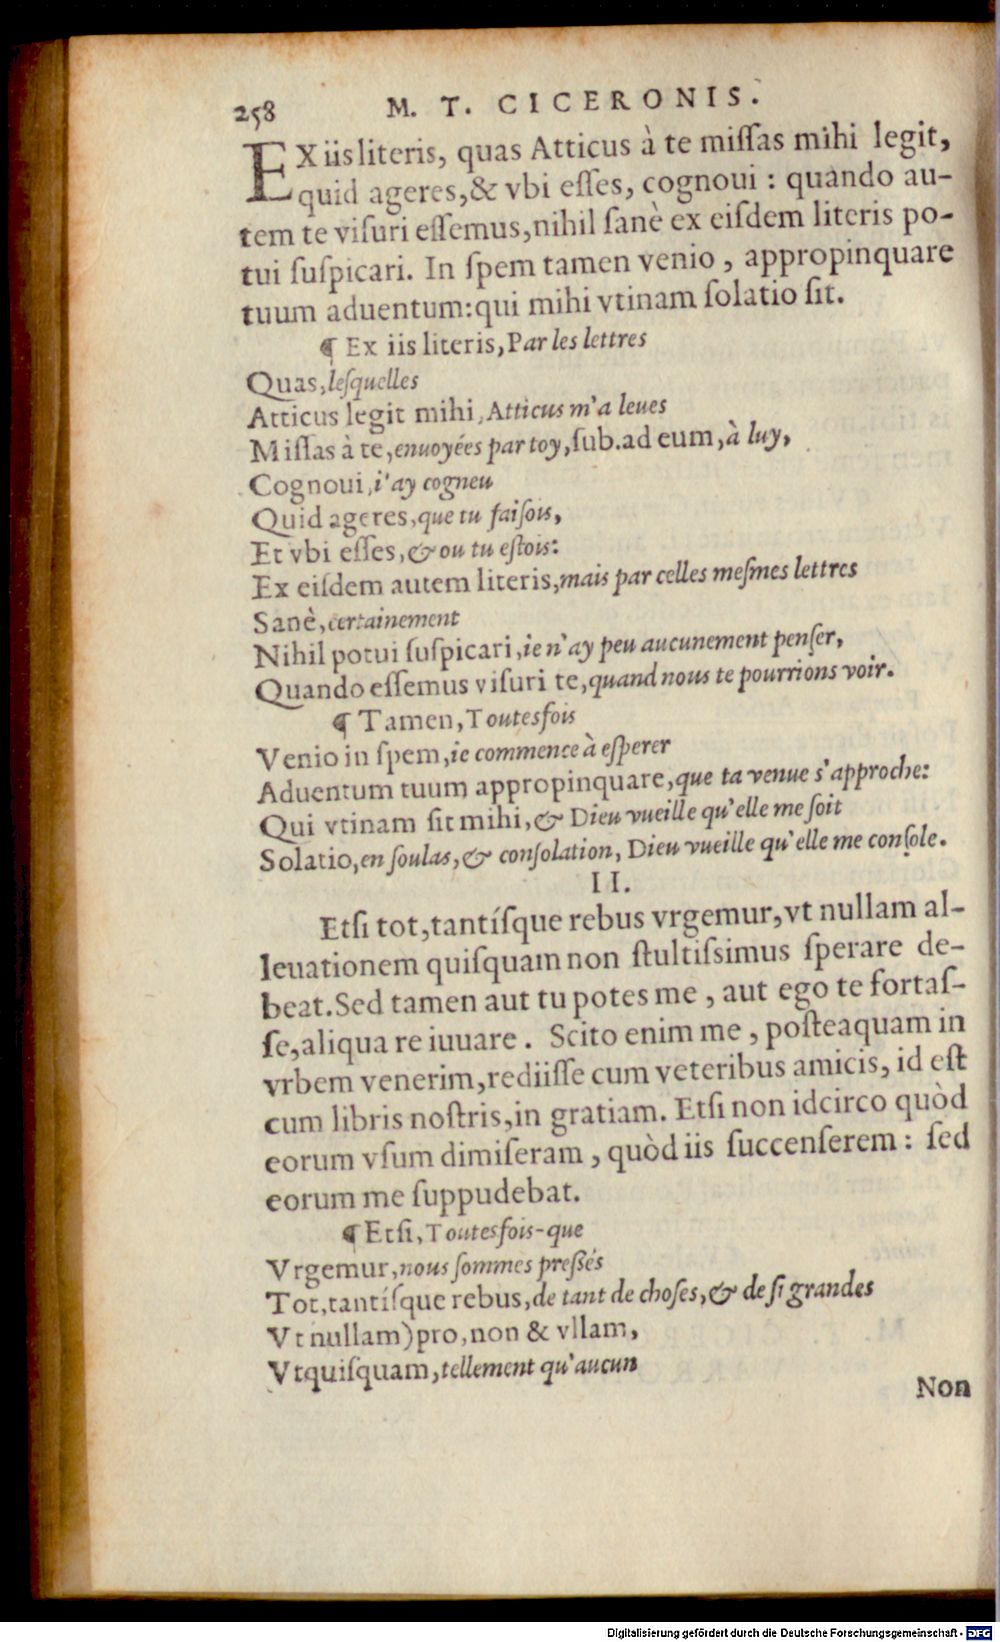 258 M. T. CICERONIS.
EX iis literis, quas Atticus à te miſſas mihi legit,
quid ageres, & vbi eſſes, cognoui : quando au-
tem te viſuri eſſemus, nihil ſanè ex eiſdem literis po-
tui ſuſpicari. In ſpem tamen venio, appropinquare
tuum aduentum: qui mihi vtinam ſolatio ſit.
¶ Ex iis literis, Par les lettres
Quas, leſquelles
Atticus legit mihi, Atticus m'a leues
Miſſas à te, enuoyées par toy, ſub. ad eum, à luy,
Cognoui, i'ay cogneu
Quid ageres, que tu faiſois,
Et vbi eſſes, & ou tu eſtois:
Ex eiſdem autem literis, mais par celles meſmes lettres
Sanè, certainement
Nihil potui ſuſpicari, ie n'ay peu aucunement penſer,
Quando eſſemus viſuri te, quand nous te pourrions voir.
¶ Tamen, Toutesfois
Venio in ſpem, ie commence à eſperer
Aduentum tuum appropinquare, que ta venue s'approche:
Qui vtinam ſit mihi, & Dieu vueille qu'elle me ſoit
Solatio, en ſoulas, & conſolation, Dieu vueille qu'elle me conſole.
II.
Etſi tot, tantíſque rebus vrgemur, vt nullam al-
leuationem quiſquam non ſtultiſsimus ſperare de-
beat. Sed tamen aut tu potes me, aut ego te fortaſ-
ſe, aliqua re iuuare. Scito enim me, poſteaquam in
vrbem venerim, rediiſſe cum veteribus amicis, id eſt
cum libris noſtris, in gratiam. Etſi non idcirco quòd
eorum vſum dimiſeram, quòd iis ſuccenſerem : ſed
eorum me ſuppudebat.
¶ Etſi, Toutesfois-que
Vrgemur, nous ſommes preſsés
Tot, tantíſque rebus, de tant de choſes, & de ſi grandes
Vt nullam) pro, non & vllam,
Vt quiſquam, tellement qu'aucun
Non
Digitalisierung gefördert durch die Deutsche Forschungsgemeinschaft - DFG